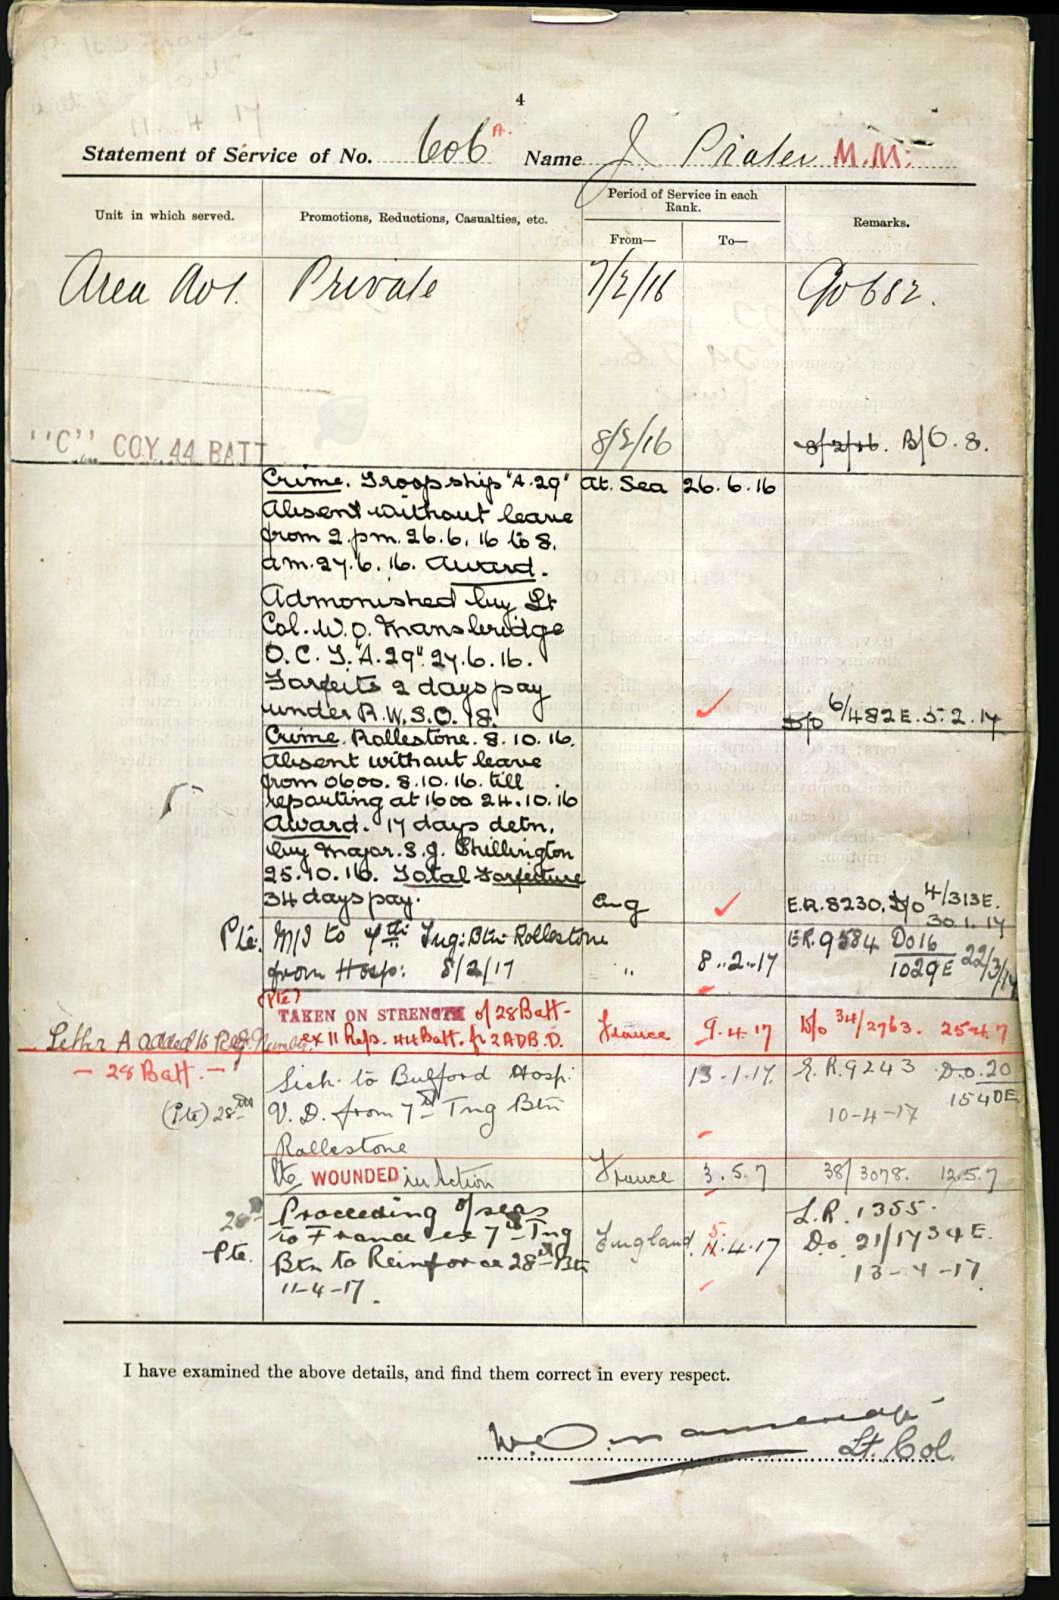 4
Statement of Service of No. 606 A. Name J. Prater M.M.
Unit in which served.
Promotions, Reductions, Casualties, etc.
Period of Service in each Rank.
From—
To—
Remarks.
Area Private 7/2/16 682.
"C" COY. 44 BATT 8/2/16 8/2/16. B/O. 8.
Crime. Troopship "A.29" At. Sea 26.6.16
Absent without leave
from 2 pm. 26.6.16 to 8.
am. 27.6.16. Award.
Admonished by Lt
Col. W.O. Mansbridge
O.C.T. "A.29". 27.6.16.
Forfeits 2 days pay
under R.W.S.O. 18. D/O 6/482E. 5.2.17
Crime. Rollestone. 8.10.16.
Absent without leave
from 0600. 8.10.16. till
reporting at 1600 24.10.16
Award. 17 days detn.
by Major. S.J. Shillington
25.10.16. Total Forfeiture
34 days pay. Eng E.R. 8230. D/O 4/313E.
30.1.17
Pte. M/I to 7th Tng: Btn Rollestone E.R. 9584 DO16
from Hosp: 8/2/17 " 8.2.17 1029E 22/3/17
(Pte)
TAKEN ON STRENGTH of 28 Batt-
Letter A added to Reg. Number. ex 11 Refs. 44 Batt. fr 2 ADB.D. France 9.4.17 D/o 34/2763. 25.4.7
- 28 Batt. -
Sick to Bulford Hosp: 13.1.17. E.R. 9243 D.O. 20
(Pte) 28th V.D. from 7th Tng Btn 10-4-17 1540E
Rollestone
Pte WOUNDED in Action France 3.5.7 38/3078. 12.5.7
28th Proceeding O/seas L.R. 1355.
Pte. to France ex 7th Tng England 5.4.17 Do 21/1734E.
Btn to Reinforce 28th Btn 13-4-17.
11-4-17.
I have examined the above details, and find them correct in every respect.
Lt. Col.